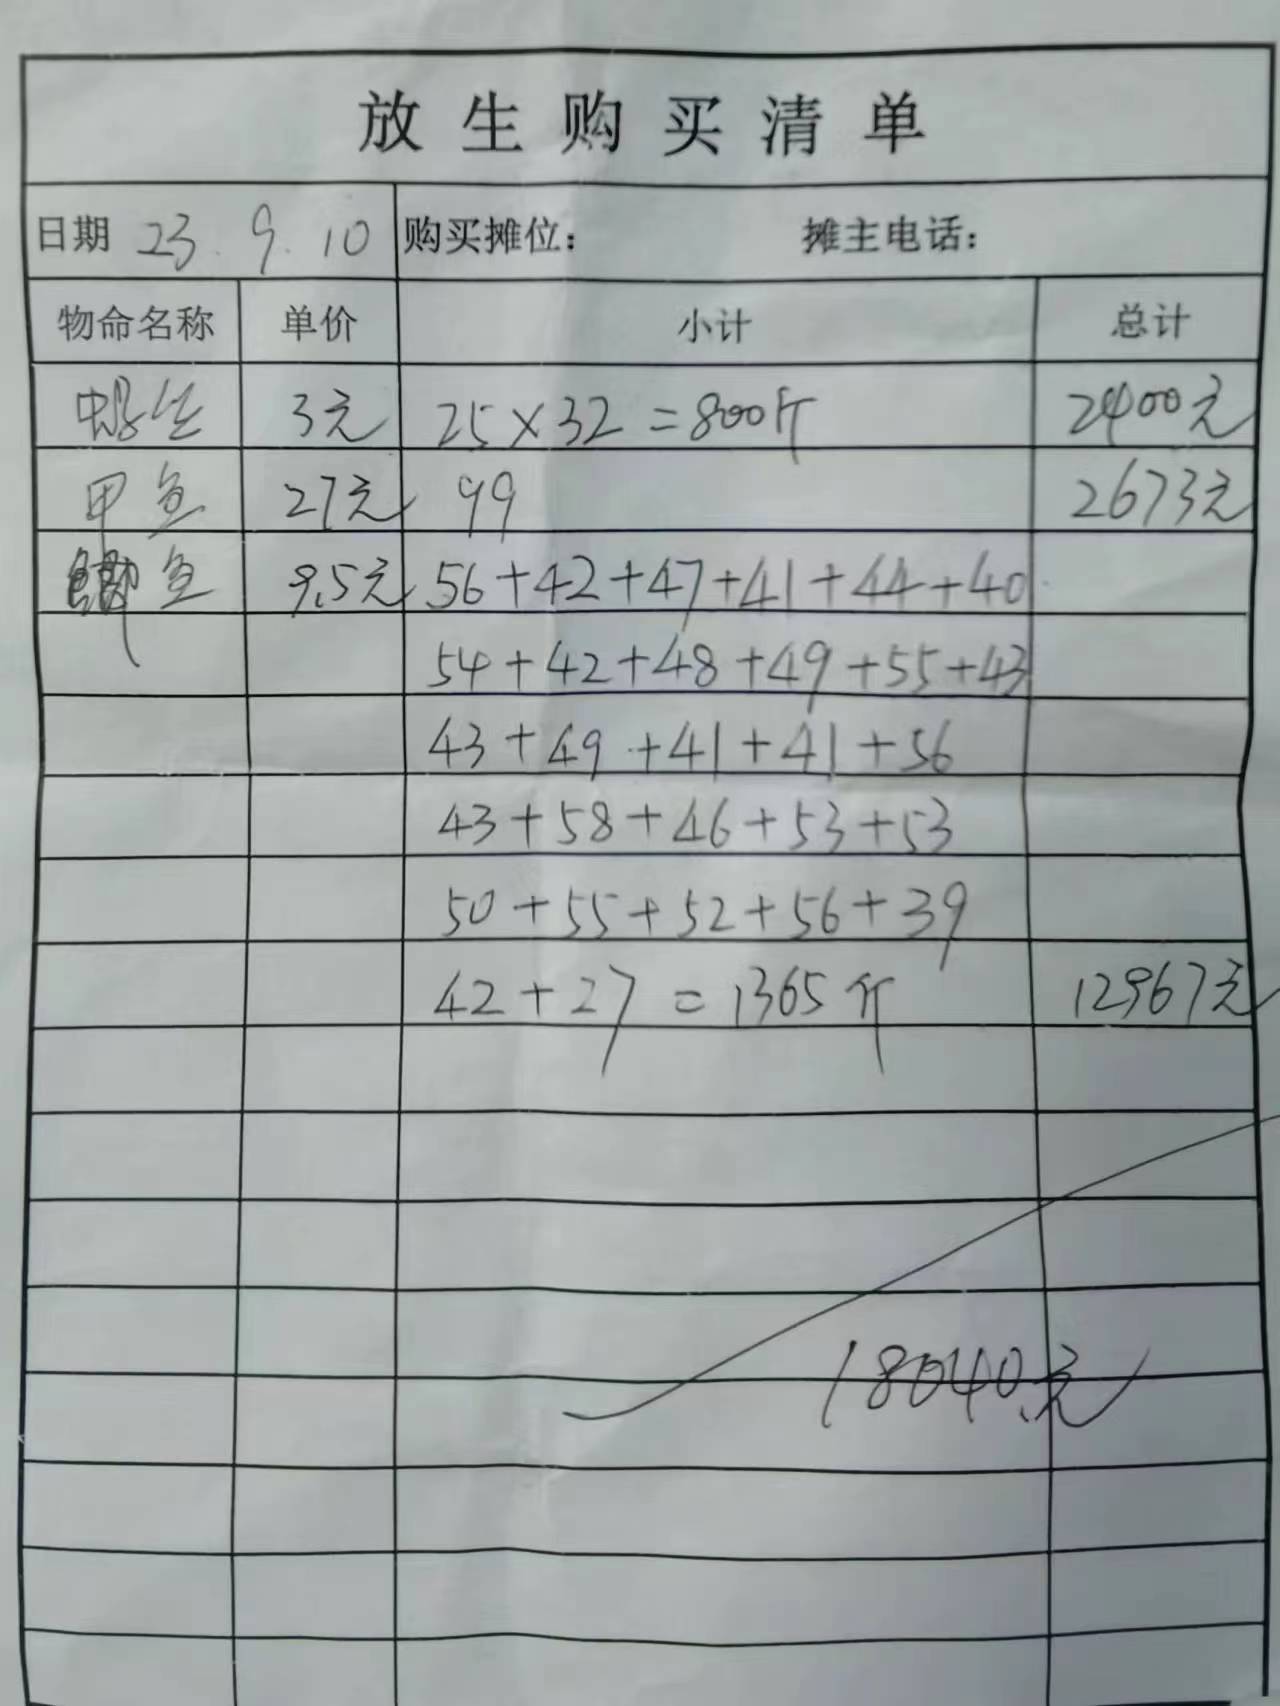 放生购买清单
日期 23.9.10 购买摊位： 摊主电话：
物命名称 单价 小计 总计
3元 25×32=800斤 2400元
甲鱼 27元 99 2673元
鲫鱼 9.5元 56+42+47+41+44+40
54+42+48+49+55+43
43+49+41+41+56
43+58+46+53+53
50+55+52+56+39
42+27=1365斤 12967元
18040元